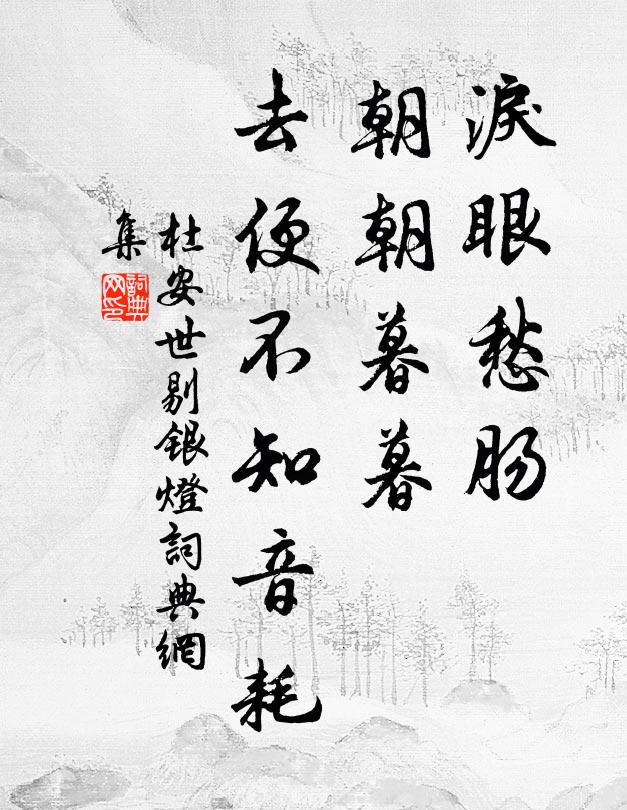 淚眼愁腸
朝朝暮暮
去便不知音耗
杜安世剔銀燈詞典網
集
詞典
网印